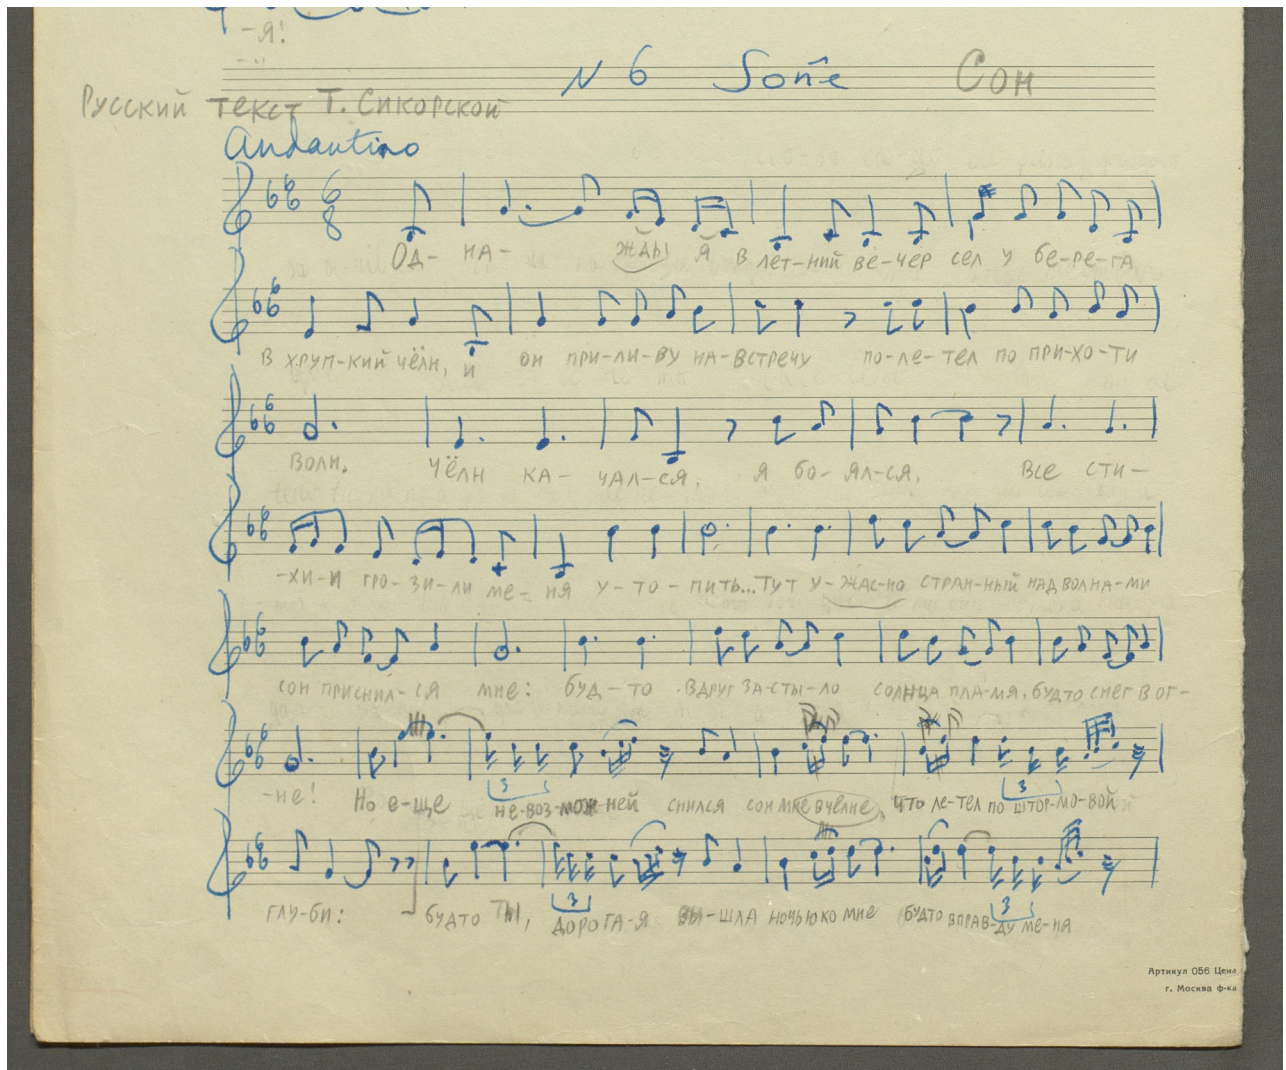 -Я!
N 6 Soñe Сон
Русский текст Т. Сикорской
Andantino
6 8
Од- на- жды я в лет-ний ве-чер сел у бе-ре-га
в хруп-кий чёлн, и он при-ли-ву на-встречу по-ле-тел по при-хо-ти
волн. Чёлн ка- чал-ся, я бо-ял-ся, все сти-
-хи-и гро-зи-ли ме-ня у-то-пить... Тут у-жас-но стран-ный над волна-ми
сон приснил-ся мне: буд-то вдруг за-сты-ло солнца пла-мя, будто снег в ог-
-не! Но е-ще не-воз-мож ней снился сон мне в челне, что ле-тел по штор-мо-вой
3 3
глу-би: будто ты, дорога-я вы-шла ночью ко мне будто вправ-ду ме-ня
3 3
Артикул 056 Цена
г. Москва ф-ка